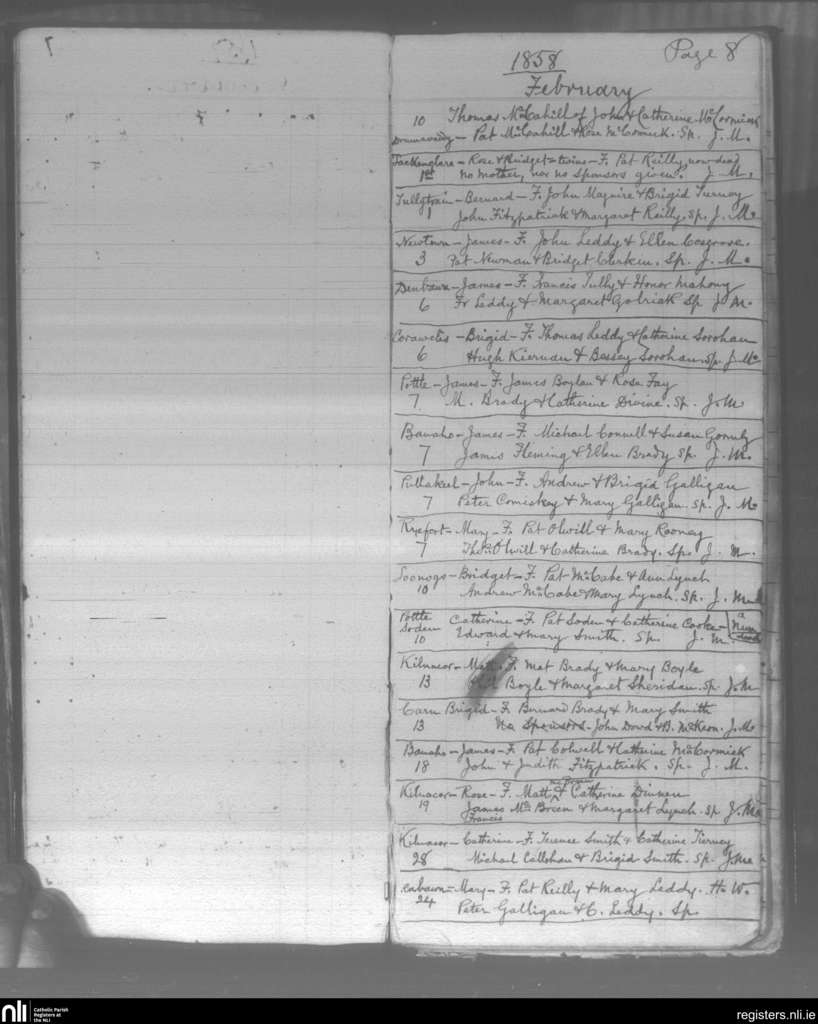 7
Page 8
1858
February
10 Thomas McCahill of John & Catherine McCormick
Pat McCahill & Rose McCormick. Sp. J. M.
Rose & Bridget = twins - F. Pat Reilly, now dead
1st no mother, nor no sponsors given. J M.
Bernard - F. John Maguire & Brigid Tierney
1 John Fitzpatrick & Margaret Reilly. Sp. J. M.
Newtown - James - F. John Leddy & Ellen Cosgrove.
3 Pat Newman & Bridget Clerkin. Sp. J. M.
Denbawn - James - F. Francis Tully & Honor Mahony
6 Fr Leddy & Margaret Sp J M.
Brigid - F. Thomas Leddy & Catherine Sorohan
6 Hugh Kiernan & Bessey Sorohan. Sp. J. M.
Pottle - James - F. James Boylan & Rose Fay
7 M. Brady & Catherine Divine. Sp. J. M
James - F. Michael Connell & Susan
7 James Fleming & Ellen Brady Sp. J. M.
John - F. Andrew & Brigid Galligan
7 Peter Comiskey & Mary Galligan. Sp. J. M.
Mary - F. Pat Olwill & Mary Rooney
7 Thos. Olwill & Catherine Brady. Sp. J. M.
Bridget - F. Pat McCabe & Ann Lynch
10 Andrew McCabe & Mary Lynch. Sp. J. M.
Pottle
Soden Catherine - F. Pat Soden & Catherine Cooke - a Nun
10 Edward & Mary Smith. Sp. J. M.
Kilnacor - Matt. F. Mat Brady & Mary Boyle
13 Boyle & Margaret Sheridan. Sp. J. M
Carn Brigid - F. Bernard Brady & Mary Smith
13 No Sponsors - John Dowd & B. McKeon. J. M.
James - F. Pat Colwell & Catherine McCormick
18 John & Judith Fitzpatrick. Sp. J. M.
Kilnacor - Rose - F. Matt & Catherine Dinneen
19 James McBrien & Margaret Lynch. Sp J. M.
Francis
Kilnacor - Catherine - F. Terence Smith & Catherine Tierney
28 Michael Callohan & Brigid Smith. Sp. J. M.
Mary - F. Pat Reilly & Mary Leddy. H. W.
24 Peter Galligan & C. Leddy. Sp.
nli
Catholic Parish
Registers at
the NLI
registers.nli.ie